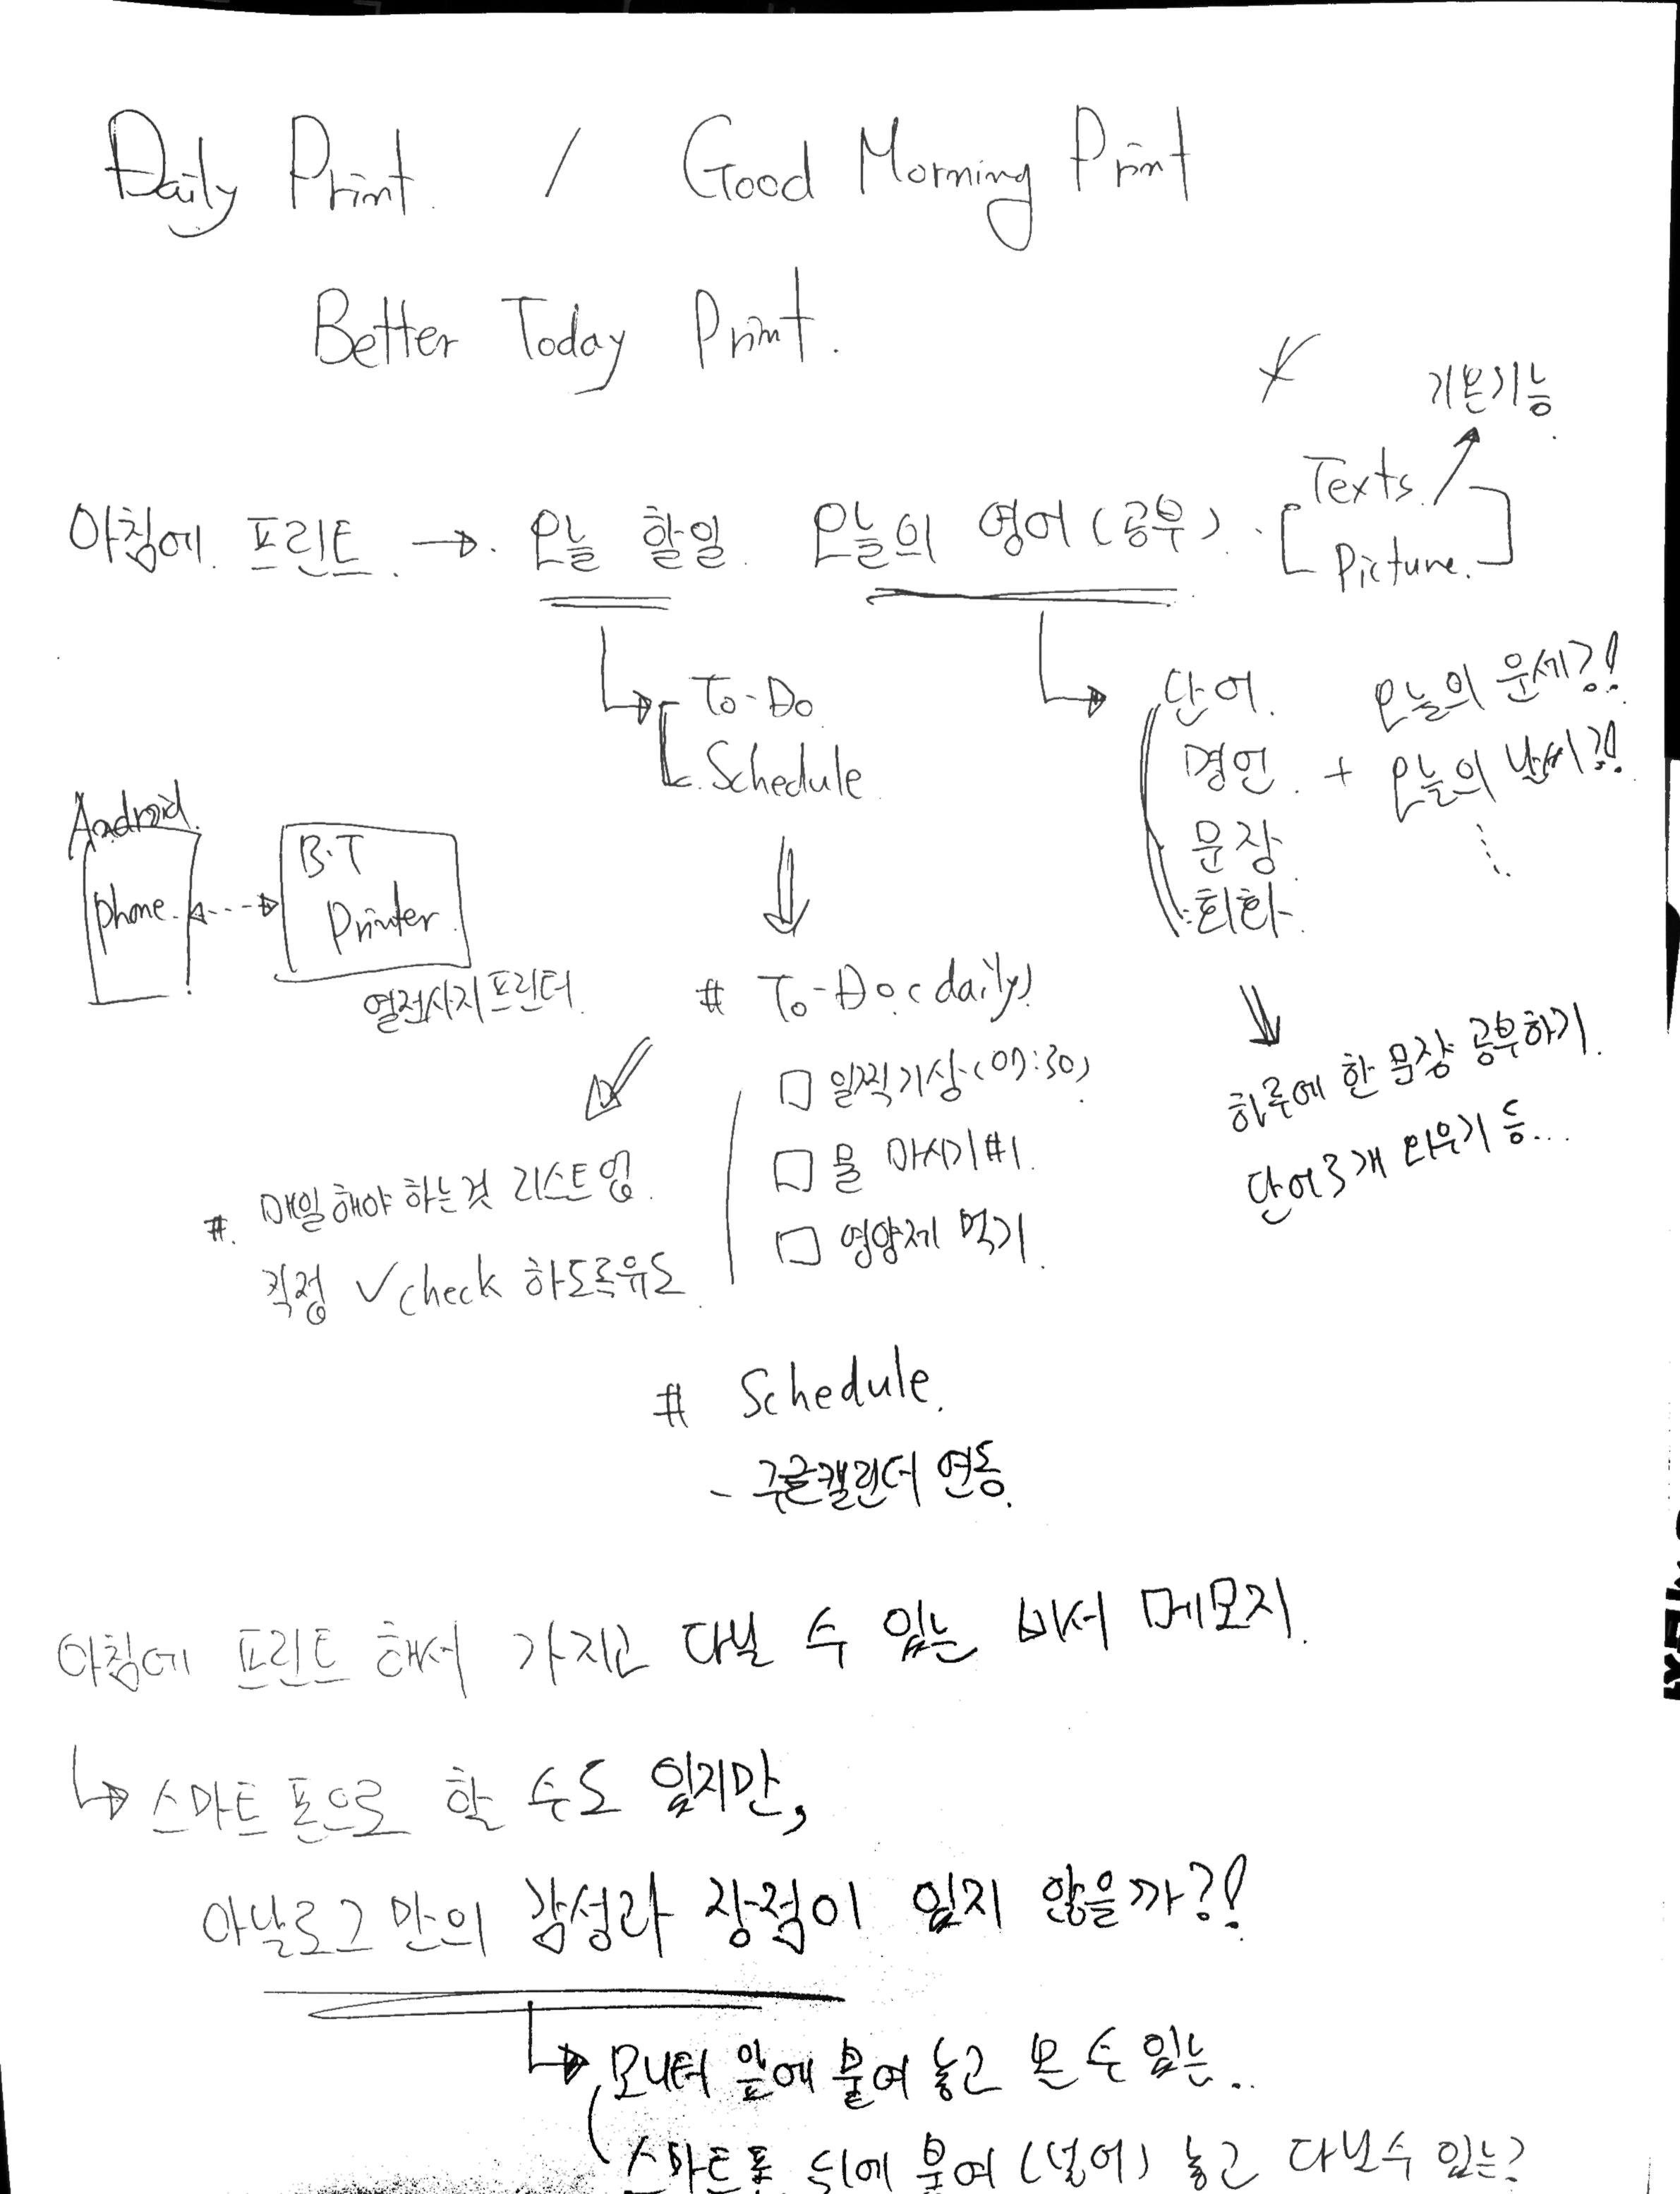 Daily Print. / Good Morning Print
Better Today Print.
기본기능.
아침에 프린트. → 오늘 할일. 오늘의 영어(공부). [Texts.
Picture.]
To-Do
Schedule
단어. 오늘의 운세?!
명언. + 오늘의 날씨?!
문장.
회화.
Android.
phone.
B.T
Printer.
열전사지 프린터.
# To-Do (daily)
□ 일찍기상(07:30)
□ 물 마시기#1.
□ 영양제 먹기.
하루에 한 문장 공부하기.
단어 3개 외우기 등...
# 매일 해야 하는것 리스트업.
직접 ✓check 하도록유도.
# Schedule.
- 구글캘린더 연동.
아침에 프린트 해서 가지고 다닐 수 있는 비서 메모지.
↳ 스마트폰으로 할 수도 있지만,
아날로그 만의 감성과 장점이 있지 않을까?!
↳ 모니터 앞에 붙여 놓고 볼 수 있는..
스마트폰 뒤에 붙여 (넣어) 놓고 다닐수 있는?